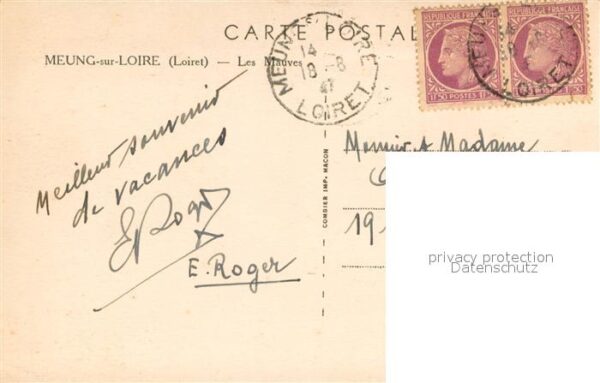 CARTE POSTAL
MEUNG-sur-LOIRE (Loiret) — Les Mauves
MEUNG S LOIRE
14
18-8
47
LOIRET
REPUBLIQUE FRANÇAISE
1F50 POSTES 1F50
REPUBLIQUE FRANÇAISE
LOIRET
Meilleur souvenir
de vacances
E. Roger
COMBIER IMP. MACON
Monsieur & Madame
19
privacy protection
Datenschutz